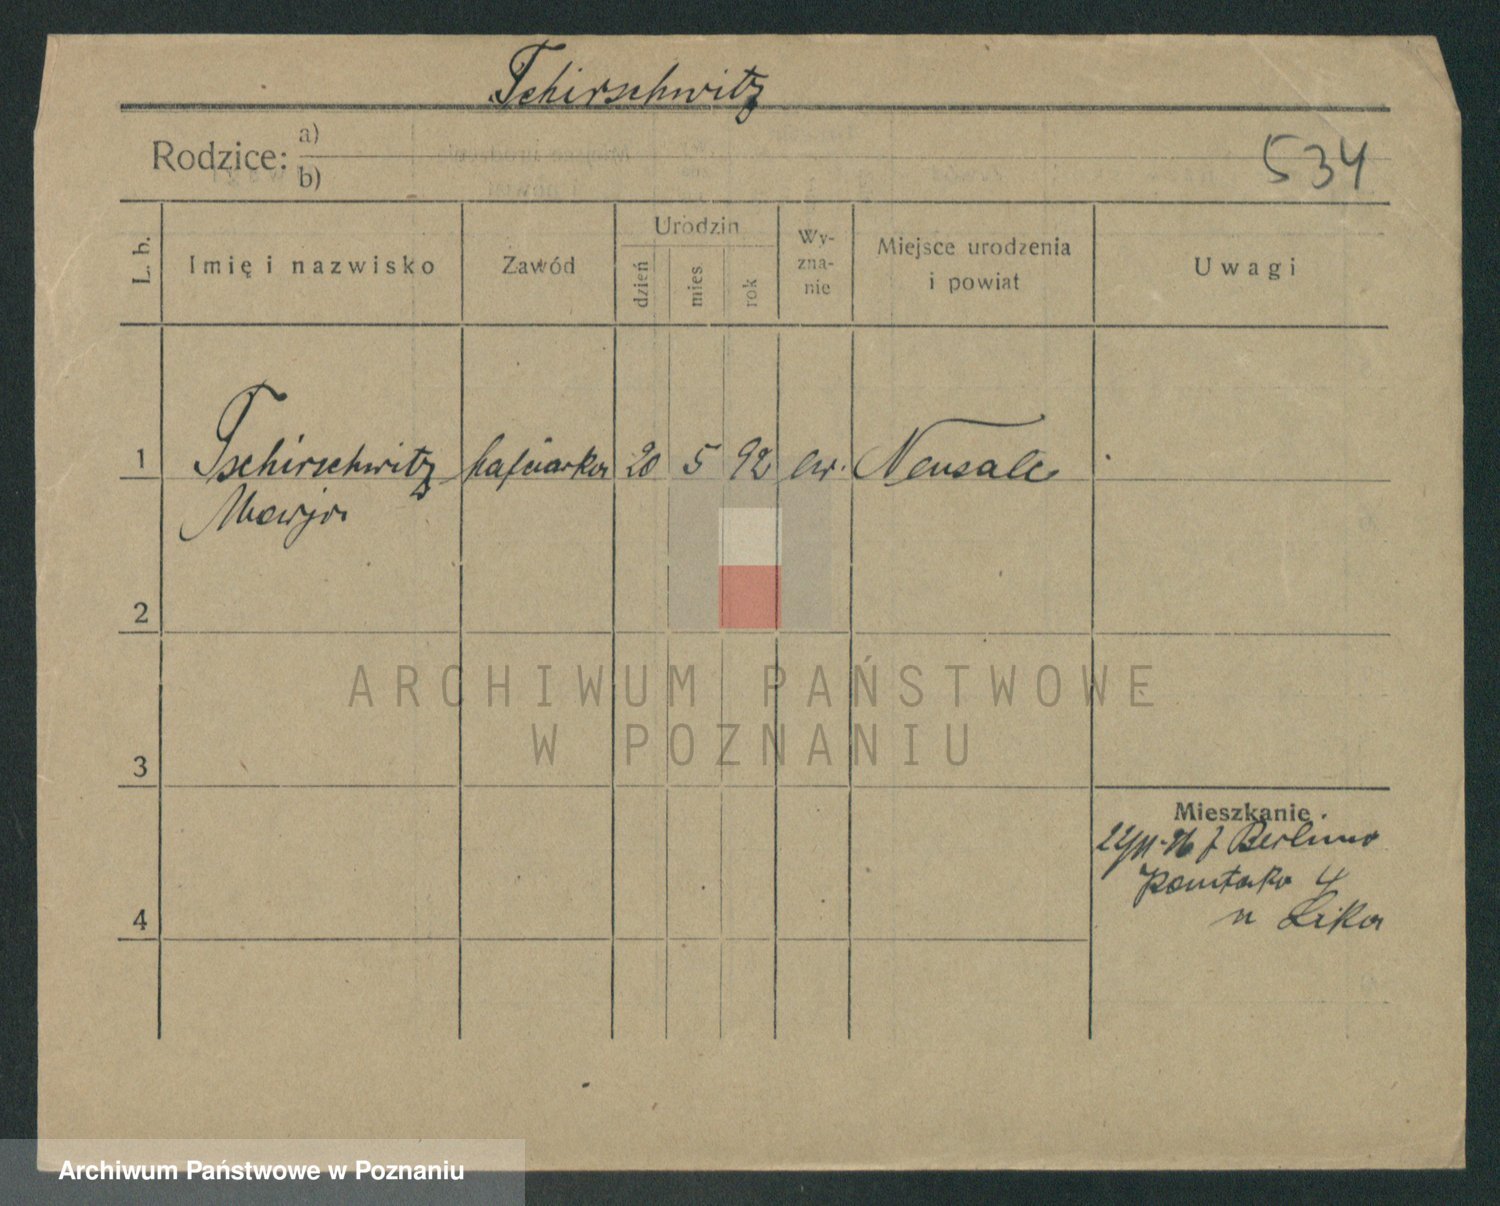 Tchirschwitz
Rodzice: a)
b)
534
L. b.
Imię i nazwisko
Zawód
Urodzin
dzień
mies.
rok
Wy-
zna-
nie
Miejsce urodzenia
i powiat
Uwagi
1 Tschirschwitz hafciarka 20 5 92 ew. Neusalc
Marja
2
3
4
Mieszkanie
z Berlina
4
u
ARCHIWUM PAŃSTWOWE
W POZNANIU
Archiwum Państwowe w Poznaniu